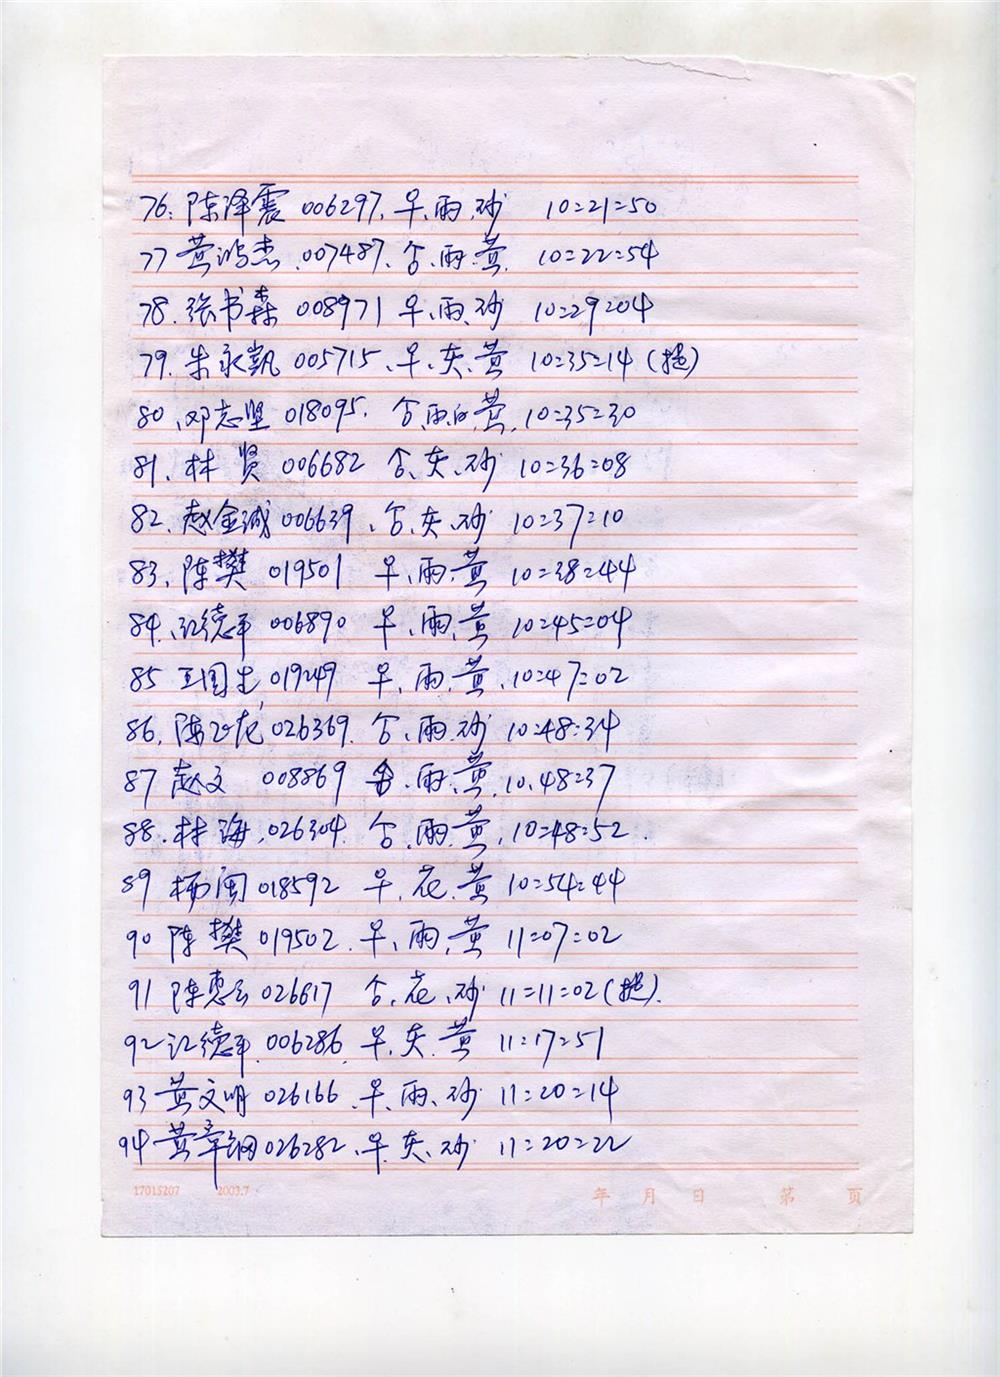 76. 陈泽震 006297. 早. 雨. 砂 10=21=50
77 黄鸿杰. 007487. 合. 雨. 黄. 10=22=54
78. 张书森 008971 早. 雨. 砂 10=29=04
79. 朱永凯 005715. 早. 灰. 黄 10=35=14 (捷)
80. 邓志坚 018095. 合. 雨白. 黄. 10=35=30
81. 林贤 006682 合. 灰. 砂 10=36=08
82. 赵金诚 006639. 合. 灰. 砂 10=37=10
83. 陈樊 019501 早. 雨. 黄 10=38=44
84. 江德平 006890 早. 雨. 黄 10=45=04
85 王国生. 019249 早. 雨. 黄. 10=47=02
86. 陈飞龙 026369. 合. 雨. 砂 10=48=34
87 赵文 008869 . 雨. 黄. 10.48=37
88. 林海. 026304. 合. 雨. 黄. 10=48=52.
89 杨闽 018592 早. 花. 黄 10=54=44
90 陈樊 019502. 早. 雨. 黄 11=07=02
91 陈惠云 026617 合. 花. 砂 11=11=02 (捷).
92 江德平. 006286. 早. 灰. 黄 11=17=51
93 黄文明 026166. 早. 雨. 砂 11=20=14
94 黄章钢 026282. 早. 灰. 砂 11=20=22
17015207 2003.7 年 月 日 第 页